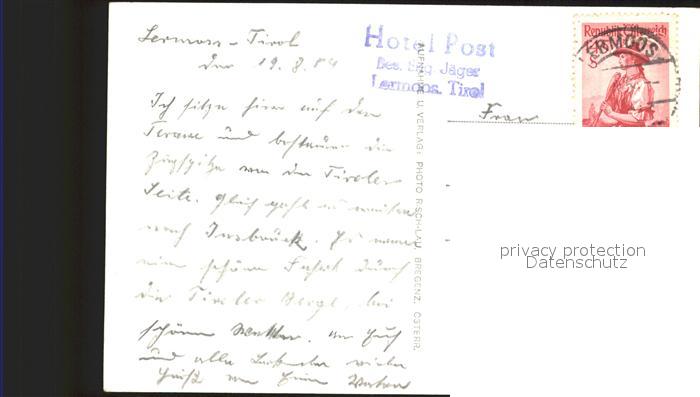 Lermoos – Tirol
den 19. 8. 54
Ich sitze hier auf der
Terasse und bestaune die
Zugspitze von der Tiroler
Seite. Gleich geht es weiter
nach Insbruck. Es war
eine schöne Fahrt durch
die Tiroler Berge, bei
schönem Wetter.
und alle
Hotel Post
Bes. Jäger
Lermoos. Tirol
Frau
Republik Österreich
LERMOOS
U. VERLAG: PHOTO RISCH-LAU, BREGENZ, ÖSTERR.
privacy protection
Datenschutz